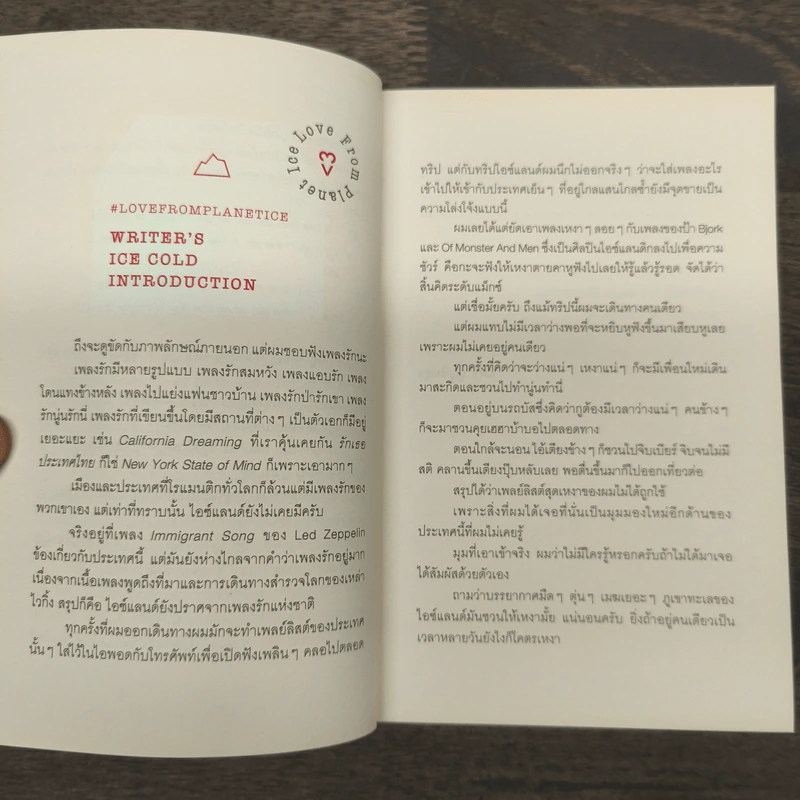 Love From Planet Ice
<3
#LOVEFROMPLANETICE
WRITER'S
ICE COLD
INTRODUCTION
ถึงจะดูขัดกับภาพลักษณ์ภายนอก แต่ผมชอบฟังเพลงรักนะ
เพลงรักมีหลายรูปแบบ เพลงรักสมหวัง เพลงแอบรัก เพลง
โดนแทงข้างหลัง เพลงไปแย่งแฟนชาวบ้าน เพลงรักป่ารักเขา เพลง
รักนู่นรักนี่ เพลงรักที่เขียนขึ้นโดยมีสถานที่ต่างๆ เป็นตัวเอกก็มีอยู่
เยอะแยะ เช่น California Dreaming ที่เราคุ้นเคยกัน รักเธอ
ประเทศไทย ก็ใช่ New York State of Mind ก็เพราะเอามากๆ
เมืองและประเทศที่โรแมนติกทั่วโลกก็ล้วนแต่มีเพลงรักของ
พวกเขาเอง แต่เท่าที่ทราบนั้น ไอซ์แลนด์ยังไม่เคยมีครับ
จริงอยู่ที่เพลง Immigrant Song ของ Led Zeppelin
ข้องเกี่ยวกับประเทศนี้ แต่มันยังห่างไกลจากคำว่าเพลงรักอยู่มาก
เนื่องจากเนื้อเพลงพูดถึงที่มาและการเดินทางสำรวจโลกของเหล่า
ไวกิ้ง สรุปก็คือ ไอซ์แลนด์ยังปราศจากเพลงรักแห่งชาติ
ทุกครั้งที่ผมออกเดินทางผมมักจะทำเพลย์ลิสต์ของประเทศ
นั้นๆ ใส่ไว้ในไอพอดกับโทรศัพท์เพื่อเปิดฟังเพลินๆ คลอไปตลอด
ทริป แต่กับทริปไอซ์แลนด์ผมนึกไม่ออกจริงๆ ว่าจะใส่เพลงอะไร
เข้าไปให้เข้ากับประเทศเย็นๆ ที่อยู่ไกลแสนไกลซ้ำยังมีจุดขายเป็น
ความโล่งโจ้งแบบนี้
ผมเลยได้แต่ยัดเอาเพลงเหงาๆ ลอยๆ กับเพลงของป้า Bjork
และ Of Monster And Men ซึ่งเป็นศิลปินไอซ์แลนดิกลงไปเพื่อความ
ชัวร์ คือกะจะฟังให้เหงาตายคาหูฟังไปเลยให้รู้แล้วรู้รอด จัดได้ว่า
สิ้นคิดระดับแม็กซ์
แต่เชื่อมั้ยครับ ถึงแม้ทริปนี้ผมจะเดินทางคนเดียว
แต่ผมแทบไม่มีเวลาว่างพอที่จะหยิบหูฟังขึ้นมาเสียบหูเลย
เพราะผมไม่เคยอยู่คนเดียว
ทุกครั้งที่คิดว่าจะว่างแน่ๆ เหงาแน่ๆ ก็จะมีเพื่อนใหม่เดิน
มาสะกิดและชวนไปทำนู่นทำนี่
ตอนอยู่บนรถบัสซึ่งคิดว่ากูต้องมีเวลาว่างแน่ๆ คนข้างๆ
ก็จะมาชวนคุยเฮฮาบ้าบอไปตลอดทาง
ตอนใกล้จะนอน ไอ้เตียงข้างๆ ก็ชวนไปจิบเบียร์ จิบจนไม่มี
สติ คลานขึ้นเตียงปุ๊บหลับเลย พอตื่นขึ้นมาก็ไปออกเที่ยวต่อ
สรุปได้ว่าเพลย์ลิสต์สุดเหงาของผมไม่ได้ถูกใช้
เพราะสิ่งที่ผมได้เจอที่นั่นเป็นมุมมองใหม่อีกด้านของ
ประเทศนี้ที่ผมไม่เคยรู้
มุมที่เอาเข้าจริง ผมว่าไม่มีใครรู้หรอกครับถ้าไม่ได้มาเจอ
ได้สัมผัสด้วยตัวเอง
ถามว่าบรรยากาศมืดๆ ตุ่นๆ เมฆเยอะๆ ภูเขาทะเลของ
ไอซ์แลนด์มันชวนให้เหงามั้ย แน่นอนครับ ยิ่งถ้าอยู่คนเดียวเป็น
เวลาหลายวันยังไงก็โคตรเหงา